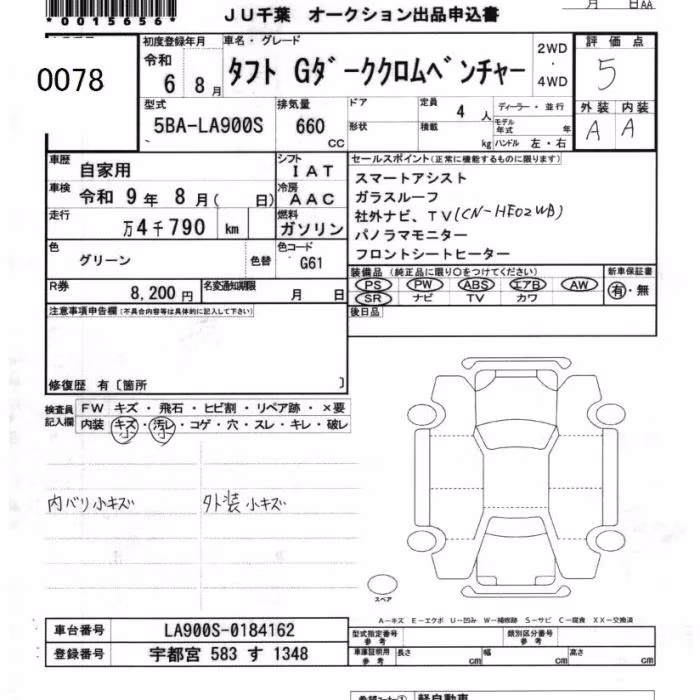 *0015656*
JU千葉 オークション出品申込書
月 日AA
0078
初度登録年月 車名・グレード
令和 6 年 8 月
タフト Gダーククロムベンチャー
2WD
・
4WD
評価点
5
外装 内装
A A
型式
5BA-LA900S
排気量
660
CC
ドア
形状
定員
4 人
積載
kg
ディーラー・並行
モデル年式 年
ハンドル 左・右
車歴
自家用
シフト
IAT
車検
令和 9 年 8 月( 日)
冷房
AAC
走行
万4千790 km
燃料
ガソリン
色
グリーン
色替
色コード
G61
R券
8,200 円
名変通知期限
月 日
セールスポイント(正常に機能するものに限ります)
スマートアシスト
ガラスルーフ
社外ナビ、TV(CN-HE02WB)
パノラマモニター
フロントシートヒーター
装備品(純正品に限り○をつけてください)
PS PW ABS エアB AW
SR ナビ TV カワ
新車保証書
有・無
後日品
注意事項申告欄(不具合内容等は具体的に記入して下さい)
修復歴 有〔箇所 〕
検査員記入欄
FW キズ・飛石・ヒビ割・リペア跡・×要
内装 キズ・汚レ・コゲ・穴・スレ・キレ・破レ
小 小
内バリ小キズ 外装小キズ
スペア
A-キズ E-エクボ U-凹み W-補修跡 S-サビ C-腐食 XX-交換済
車台番号 LA900S-0184162
登録番号 宇都宮 583 す 1348
型式指定番号 参考
類別区分番号 参考
車庫証明用 参考 長さ cm 幅 cm 高さ cm
軽自動車